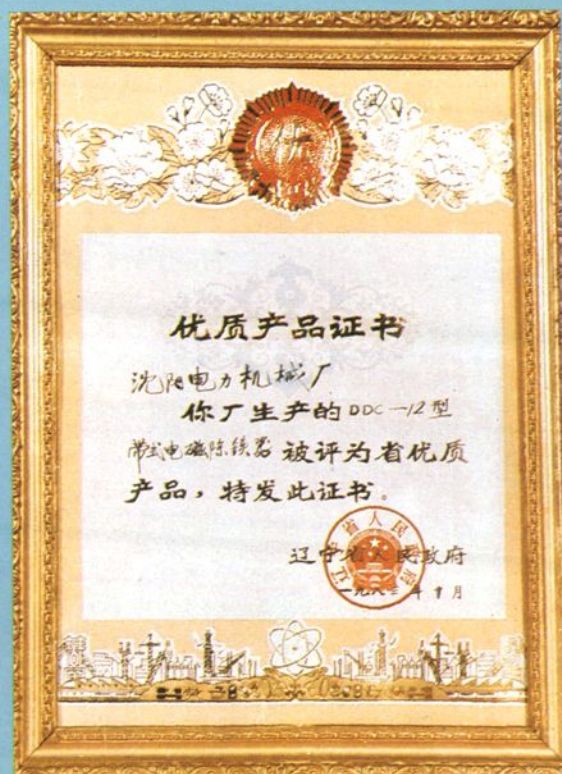 优
优质产品证书
沈阳电力机械厂
你厂生产的DDC—12型
带式电磁除铁器 被评为省优质
产品，特发此证书。
辽宁省人民政府
辽宁省人民政府
一九八三年十月